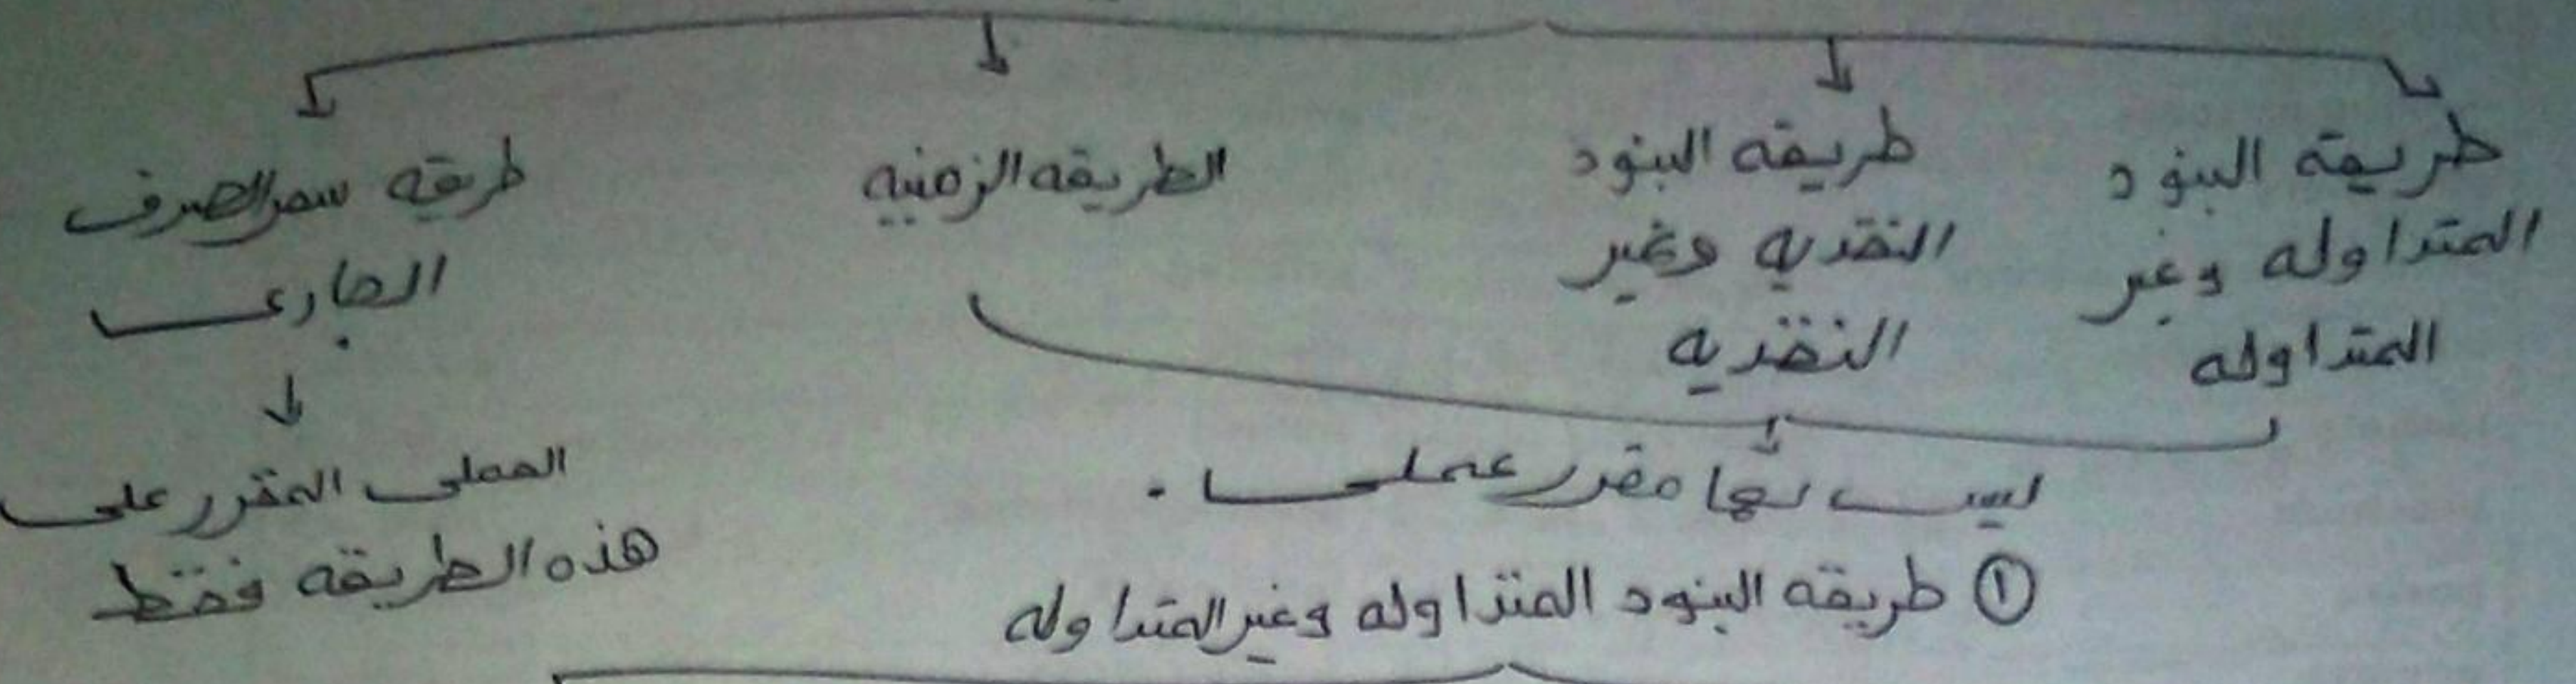 طريقة البنود
المتداوله وغير
المتداوله
طريقه البنود
النقديه وغير
النقديه
الطريقه الزمنيه
طريقه سعر الصرف
الجارى
ليس لها مقرر عملى .
العملى المقرر على
هذه الطريقه فقط
① طريقه البنود المتداوله وغير المتداوله